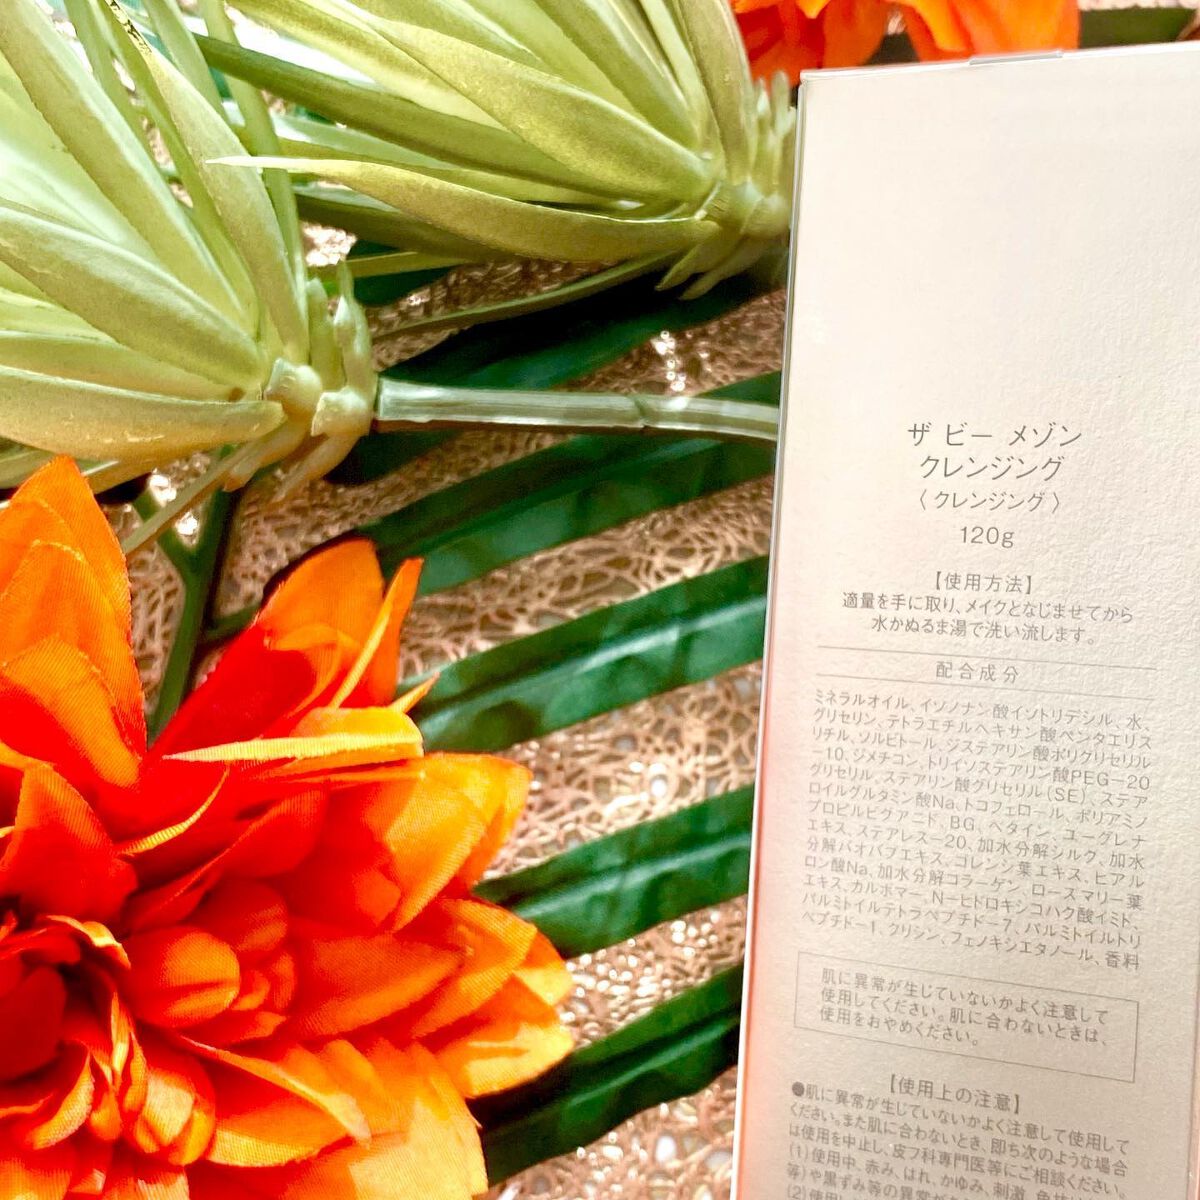 ザ ビー メゾン
クレンジング
〈クレンジング〉
120g
【使用方法】
適量を手に取り、メイクとなじませてから
水かぬるま湯で洗い流します。
配合成分
ミネラルオイル、イソノナン酸イソトリデシル、水、
グリセリン、テトラエチルヘキサン酸ペンタエリス
リチル、ソルビトール、ジステアリン酸ポリグリセリル
－10、ジメチコン、トリイソステアリン酸PEG－20
グリセリル、ステアリン酸グリセリル（SE）、ステア
ロイルグルタミン酸Na、トコフェロール、ポリアミノ
プロピルビグアニド、BG、ベタイン、ユーグレナ
エキス、ステアレス－20、加水分解シルク、加水
分解バオバブエキス、ゴレンシ葉エキス、ヒアル
ロン酸Na、加水分解コラーゲン、ローズマリー葉
エキス、カルボマー、N－ヒドロキシコハク酸イミド、
パルミトイルテトラペプチド－7、パルミトイルトリ
ペプチド－1、クリシン、フェノキシエタノール、香料
肌に異常が生じていないかよく注意して
使用してください。肌に合わないときは、
使用をおやめください。
【使用上の注意】
●肌に異常が生じていないかよく注意して使用して
ください。また肌に合わないとき、即ち次のような場合
は使用を中止し、皮フ科専門医等にご相談ください。
(1)使用中、赤み、はれ、かゆみ、刺激、
等)や黒ずみ等の異常が
(2)使用